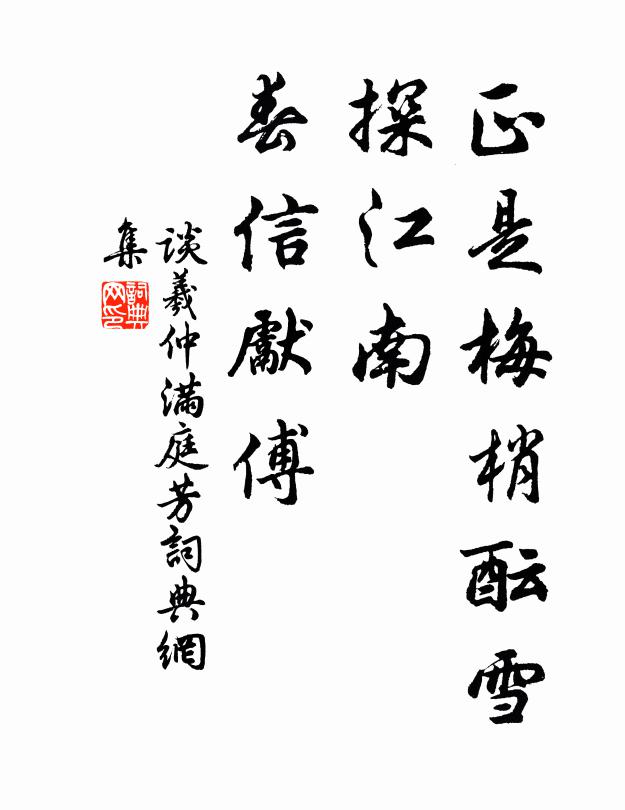 正是梅梢酝雪
探江南
春信献傅
谈羲仲满庭芳词典網
集
詞典
网印